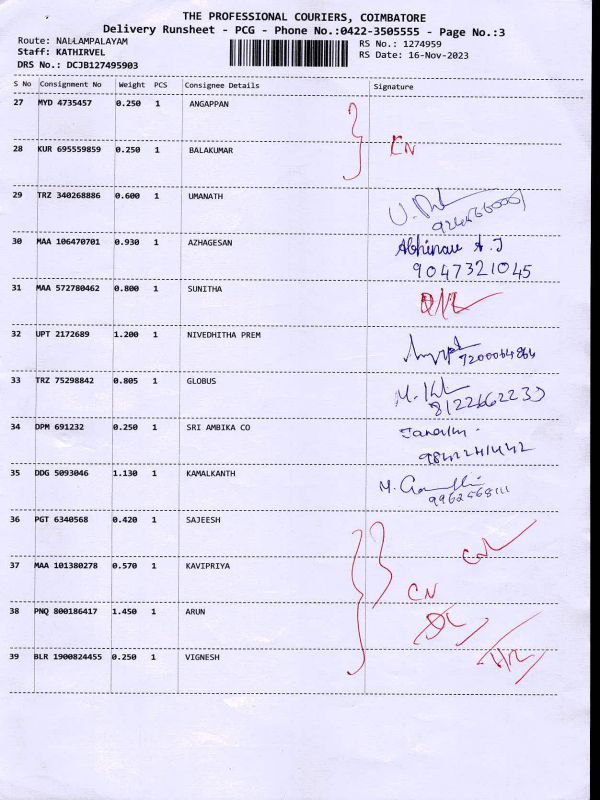 THE PROFESSIONAL COURIERS, COIMBATORE
Delivery Runsheet - PCG - Phone No.:0422-3505555 - Page No.:3
Route: NALLAMPALAYAM
RS No.: 1274959
Staff: KATHIRVEL
RS Date: 16-Nov-2023
DRS No.: DCJB127495903
S No Consignment No Weight PCS Consignee Details Signature
27 MYD 4735457 0.250 1 ANGAPPAN
28 KUR 695559859 0.250 1 BALAKUMAR CN
29 TRZ 340268886 0.600 1 UMANATH
30 MAA 106470701 0.930 1 AZHAGESAN Abhinav A.J
9047321045
31 MAA 572780462 0.800 1 SUNITHA
32 UPT 2172689 1.200 1 NIVEDHITHA PREM
7200064864
33 TRZ 75298842 0.805 1 GLOBUS
8122662230
34 DPM 691232 0.250 1 SRI AMBIKA CO
9842241442
35 DDG 5093046 1.130 1 KAMALKANTH
9962568111
36 PGT 6340568 0.420 1 SAJEESH
37 MAA 101380278 0.570 1 KAVIPRIYA CN
38 PNQ 800186417 1.450 1 ARUN
39 BLR 1900824455 0.250 1 VIGNESH